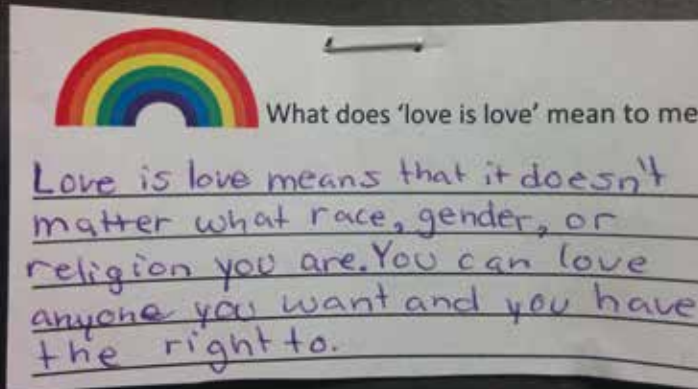 What does 'love is love' mean to me
Love is love means that it doesn't
matter what race, gender, or
religion you are. You can love
anyone you want and you have
the right to.